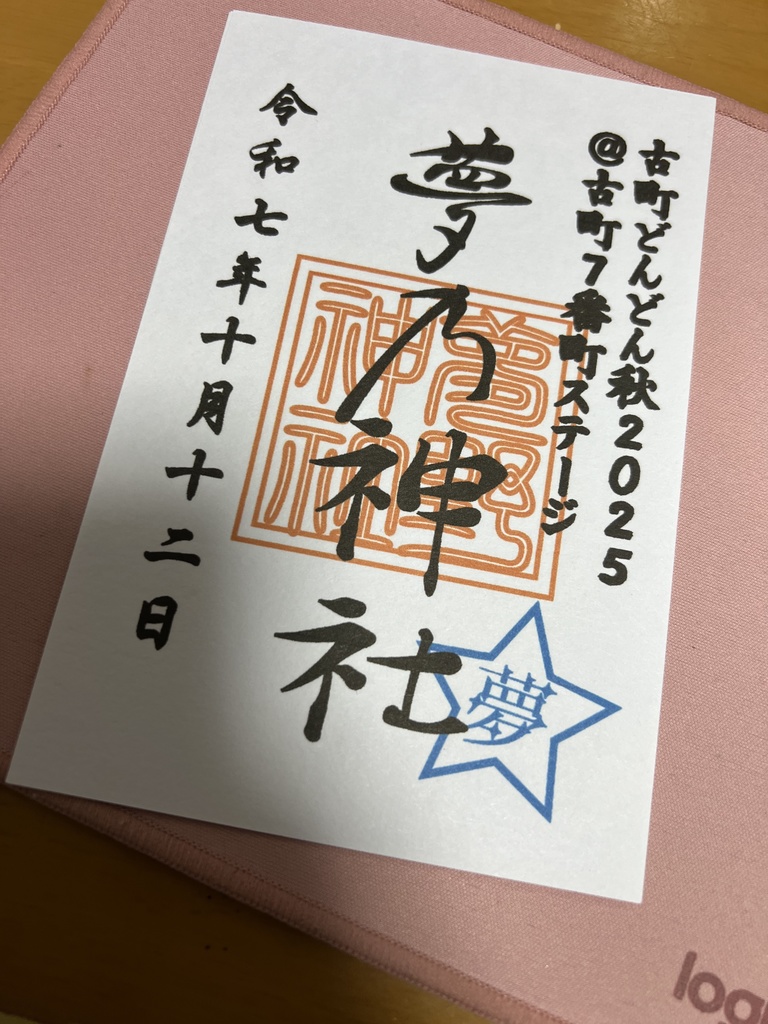 古町どんどん秋2025
@古町7番町ステージ
夢乃神社
令和七年十月十二日
夢